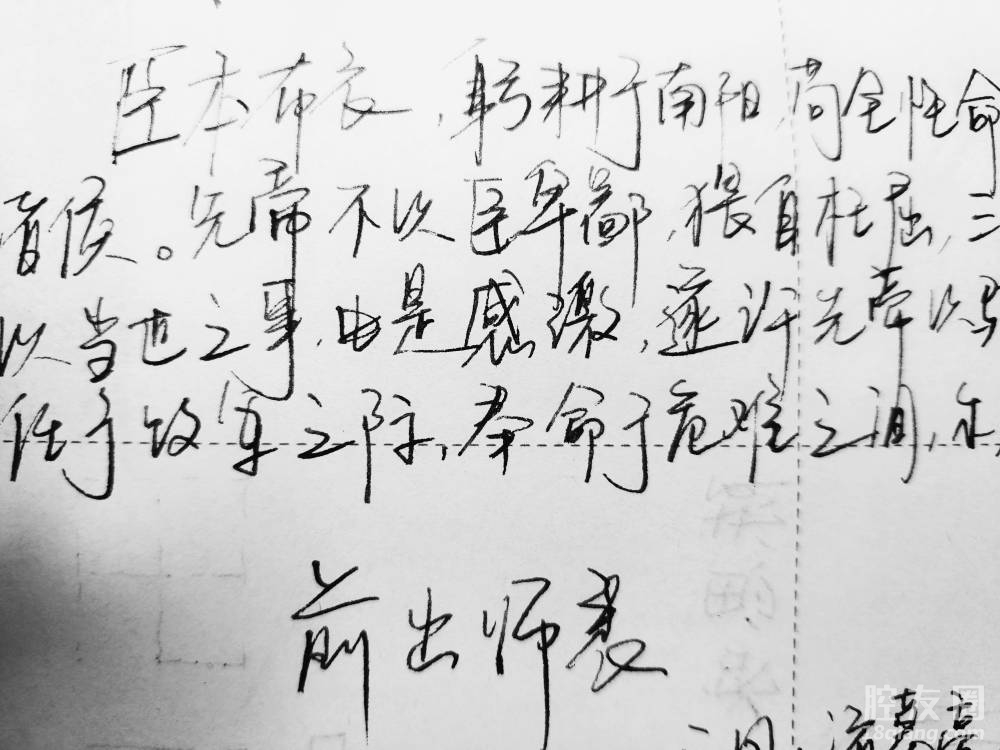 臣本布衣，躬耕于南阳，苟全性命
侯。先帝不以臣卑鄙，猥自枉屈，三
以当世之事，由是感激，遂许先帝以
任于败军之际，奉命于危难之间，尔
前出师表
腔友圈
18qiang.com